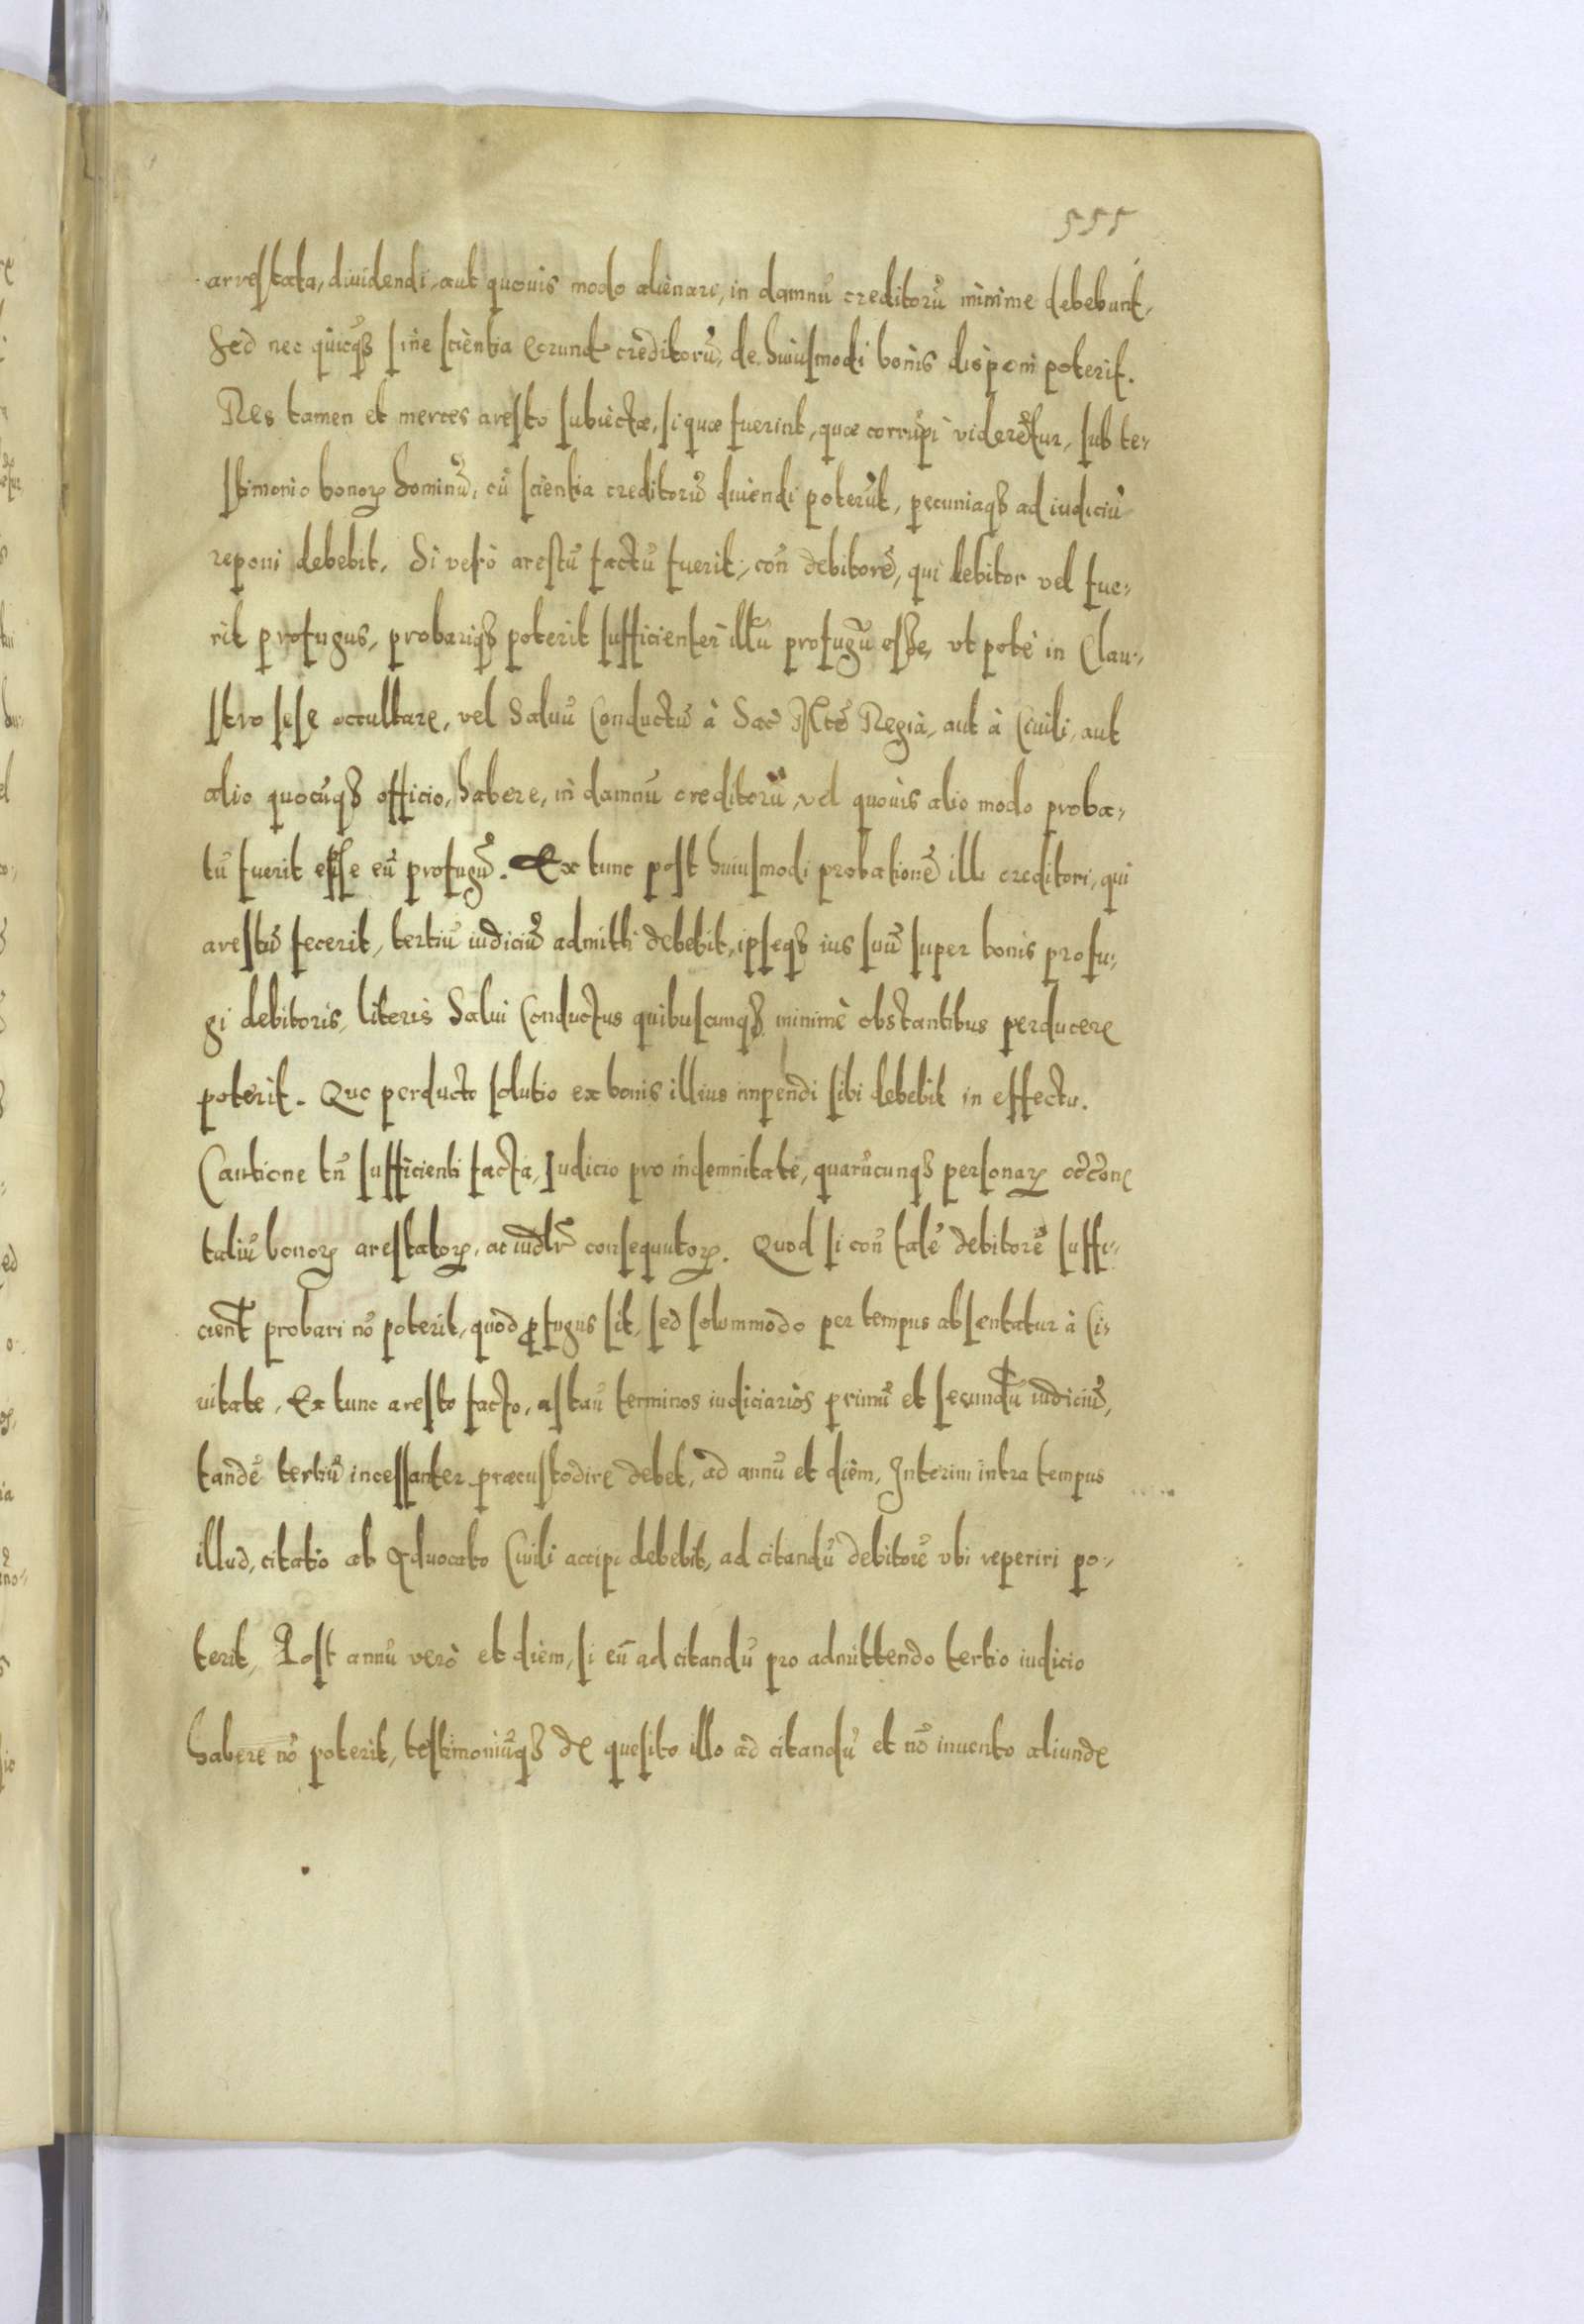 555
arrestata, diuidendi, aut quouis modo alienari, in damnũ creditorũ minime debebunt,
Sed nec quicqȝ sine scientia eorund creditorũ, de huiusmodi bonis disponi poterit.
Res tamen et merces aresto subiectæ, si quæ fuerint, quæ corrumpi viderẽtur, sub te-
stimonio bonoꝝ hominũ, cũ scientia creditorũ diuendi poterũt, pecuniaqȝ ad iudiciũ
reponi debebit, Si verò arestũ factũ fuerit, con̄ debitorẽ, qui debitor vel fue-
rit profugus, probariqȝ poterit sufficienter illũ profugũ esse, vt potè in Clau-
stro sese occultare, vel Saluũ Conductũ à Sac̃ Mtẽ Regià, aut à Ciuili, aut
alio quocũqȝ officio, habere, in damnũ creditorũ, vel quouis alio modo proba-
tũ fuerit esse eũ profugũ. Ex tunc post huiusmodi probationẽ illi creditori, qui
arestũ fecerit, tertiũ iudiciũ admitti debebit, ipseqȝ ius suũ super bonis profu-
gi debitoris, literis Salui Conductus quibuscunqȝ minimè obstantibus perducere
poterit. Quo perducto solutio ex bonis illius impendi sibi debebit in effectu.
Cautione tñ sufficienti facta, Iudicio pro indemnitate, quarũcunqȝ personaꝝ occ̃one
taliũ bonoꝝ arestatoꝝ, ac iudlr̃ consequutoꝝ. Quod si con̄ talẽ debitorẽ suffi-
cient̃ probari nõ poterit, quòd ꝓfugus sit, sed solummodo per tempus absentatur à Ci-
uitate, Ex tunc aresto facto, terminos iudiciarios primũ et secundũ iudiciũ,
tandẽ tertiũ incessanter præcustodire debet, ad annũ et diem, Interim intra tempus
illud, citatio ab Aduocato Ciuili accipi debebit, ad citandũ debitorẽ vbi reperiri po-
terit, Post annũ verò et diem, si eũ ad citandũ pro admittendo tertio iudicio
habere nõ poterit, testimoniũqȝ de quesito illo ad citandũ et nõ inuento aliunde